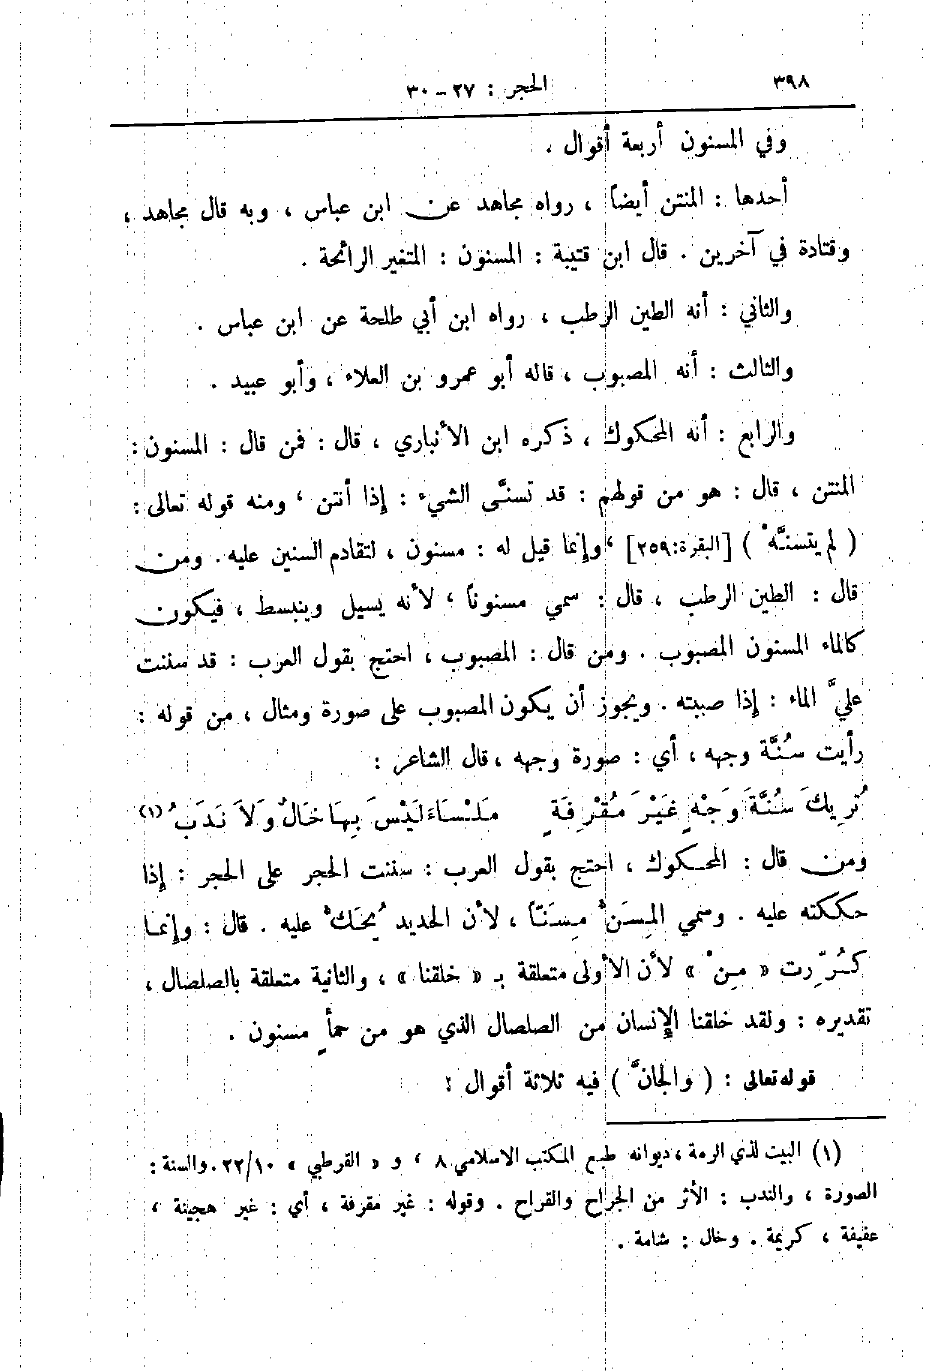 ٣٩٨
الحجر : ٢٧ – ٣٠
وفي المسنون أربعة أقوال .
أحدها : المنتن أيضاً ، رواه مجاهد عن ابن عباس ، وبه قال مجاهد ،
وقتادة في آخرين . قال ابن قتيبة : المسنون : المتغير الرائحة .
والثاني : أنه الطين الرطب ، رواه ابن أبي طلحة عن ابن عباس .
والثالث : أنه المصبوب ، قاله أبو عمرو بن العلاء ، وأبو عبيد .
والرابع : أنه المحكوك ، ذكره ابن الأنباري ، قال : فمن قال : المسنون :
المنتن ، قال : هو من قولهم : قد تسنَّى الشيء : إذا أنتن ، ومنه قوله تعالى :
( لم يتسنَّهْ ) [البقرة:٢٥٩] ، وإنما قيل له : مسنون ، لتقادم السنين عليه . ومن
قال : الطين الرطب ، قال : سمي مسنوناً ، لأنه يسيل وينبسط ، فيكون
كالماء المسنون المصبوب . ومن قال : المصبوب ، احتج بقول العرب : قد سننت
عليَّ الماء : إذا صببته . ويجوز أن يكون المصبوب على صورة ومثال ، من قوله :
رأيت سُنَّة وجهه ، أي : صورة وجهه ، قال الشاعر :
تُرِيكَ سُنَّةَ وَجْهٍ غَيْرَ مُقْرِفَةٍ مَلْسَاءَ لَيْسَ بِهَا خَالٌ وَلَا نَدَبُ (١)
ومن قال : المحكوك ، احتج بقول العرب : سننت الحجر على الحجر : إذا
حككته عليه . وسمي المِسَنُّ مِسَنّاً ، لأن الحديد يُحَكُّ عليه . قال : وإنما
كُرِّرت « مِنْ » لأن الأولى متعلقة بـ « خلقنا » ، والثانية متعلقة بالصلصال ،
تقديره : ولقد خلقنا الإنسان من الصلصال الذي هو من حمأٍ مسنون .
قوله تعالى : ( والجانَّ ) فيه ثلاثة أقوال :
(١) البيت لذي الرمة ، ديوانه طبع المكتب الاسلامي ٨ ، و « القرطبي » ٢٢/١٠ . والسنة :
الصورة ، والندب : الأثر من الجراح والقراح . وقوله : غير مقرفة ، أي : غير هجينة ،
عفيفة ، كريمة . وخال : شامة .